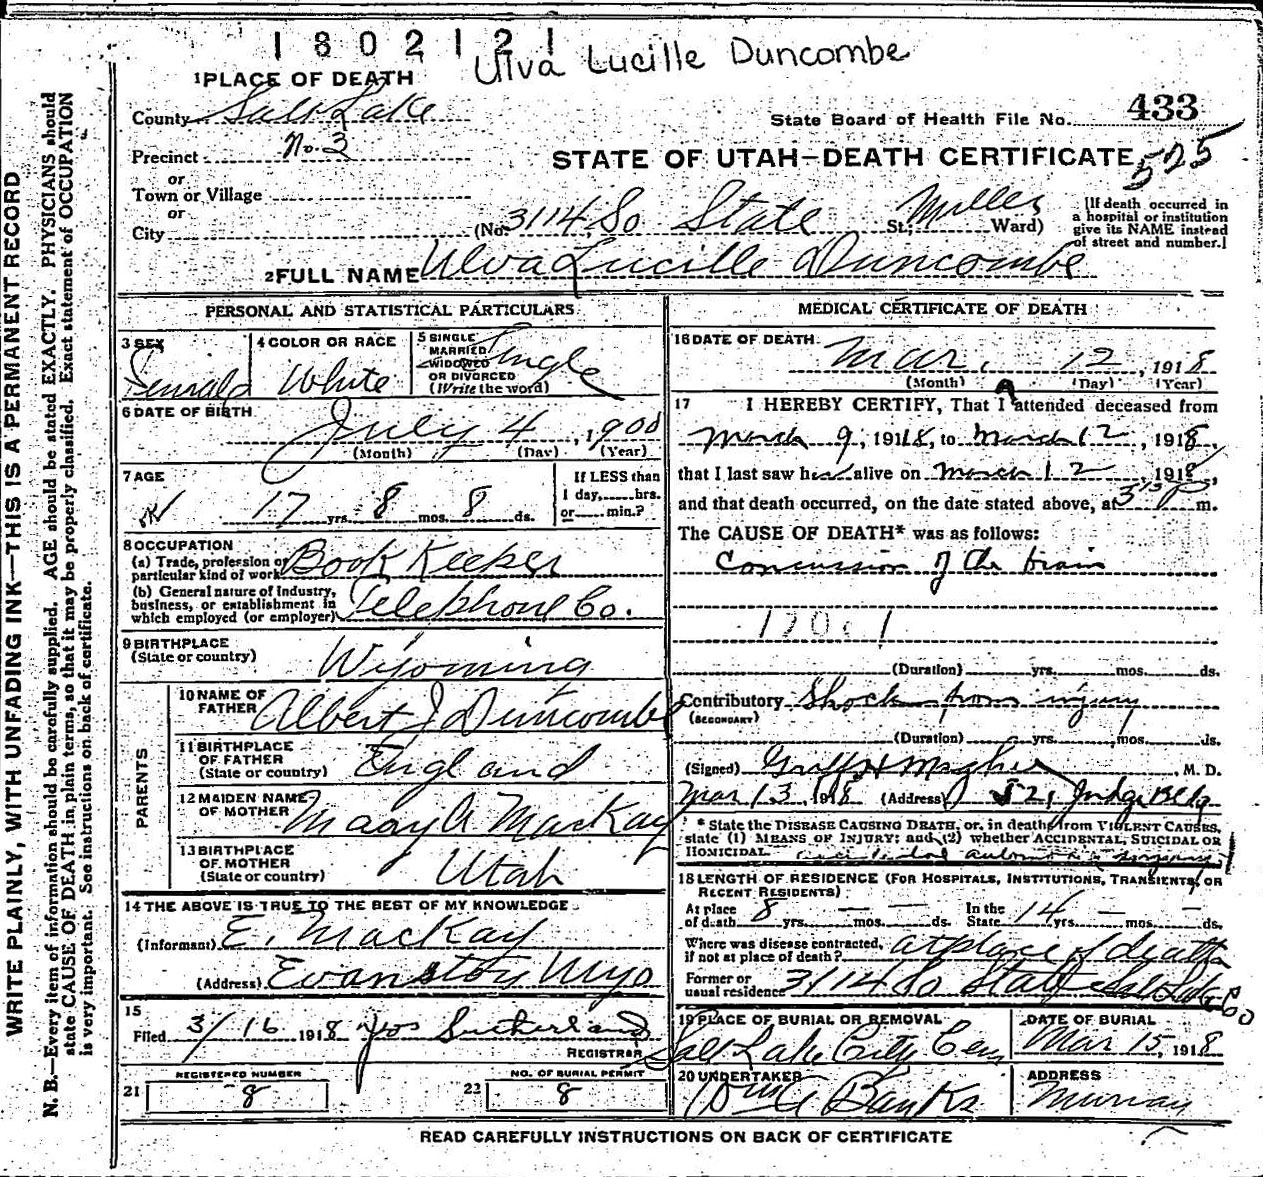 1802121
Ulva Lucille Duncombe
1 PLACE OF DEATH
County Salt Lake
State Board of Health File No. 433
Precinct No. 3
STATE OF UTAH—DEATH CERTIFICATE 525
or
Town or Village
or
City (No. 3114 So State St. Miller Ward)
[If death occurred in
a hospital or institution
give its NAME instead
of street and number.]
2 FULL NAME Ulva Lucille Duncombe
PERSONAL AND STATISTICAL PARTICULARS
3 SEX Female
4 COLOR OR RACE White
5 SINGLE
MARRIED
WIDOWED
OR DIVORCED
(Write the word) Single
6 DATE OF BIRTH
July 4, 1900
(Month) (Day) (Year)
7 AGE
17 yrs. 8 mos. 8 ds.
If LESS than
1 day, hrs.
or min.?
8 OCCUPATION
(a) Trade, profession or
particular kind of work Book Keeper
(b) General nature of industry,
business, or establishment in
which employed (or employer) Telephone Co.
9 BIRTHPLACE
(State or country) Wyoming
PARENTS
10 NAME OF
FATHER Albert J Duncombe
11 BIRTHPLACE
OF FATHER
(State or country) England
12 MAIDEN NAME
OF MOTHER Mary A MacKay
13 BIRTHPLACE
OF MOTHER
(State or country) Utah
14 THE ABOVE IS TRUE TO THE BEST OF MY KNOWLEDGE
(Informant) E. MacKay
(Address) Evanston Wyo
15
Filed 3/16 1918 Jos Sutherland
REGISTRAR
REGISTERED NUMBER
21 8
NO. OF BURIAL PERMIT
22 8
MEDICAL CERTIFICATE OF DEATH
16 DATE OF DEATH
Mar. 12, 1918
(Month) (Day) (Year)
17 I HEREBY CERTIFY, That I attended deceased from
March 9, 1918, to March 12, 1918,
that I last saw her alive on March 12, 1918,
and that death occurred, on the date stated above, at 3 15 P m.
The CAUSE OF DEATH* was as follows:
Concussion of the brain
(Duration) yrs. mos. ds.
Contributory Shock from injury
(SECONDARY)
(Duration) yrs. mos. ds.
(Signed) , M. D.
Mar 13, 1918 (Address) 521 Judge Bldg
* State the DISEASE CAUSING DEATH, or, in deaths from VIOLENT CAUSES,
state (1) MEANS OF INJURY; and (2) whether ACCIDENTAL, SUICIDAL OR
HOMICIDAL.
18 LENGTH OF RESIDENCE (FOR HOSPITALS, INSTITUTIONS, TRANSIENTS, OR
RECENT RESIDENTS)
At place
of death 8 yrs. — mos. — ds. In the
State 14 yrs. — mos. — ds.
Where was disease contracted,
if not at place of death? at place of death
Former or
usual residence 3114 So State Salt Lake Co
19 PLACE OF BURIAL OR REMOVAL
Salt Lake City Cem
DATE OF BURIAL
Mar 15, 1918
20 UNDERTAKER
Wm A Banks
ADDRESS
Murray
READ CAREFULLY INSTRUCTIONS ON BACK OF CERTIFICATE
WRITE PLAINLY, WITH UNFADING INK—THIS IS A PERMANENT RECORD
N. B.—Every item of information should be carefully supplied. AGE should be stated EXACTLY. PHYSICIANS should
state CAUSE OF DEATH in plain terms, so that it may be properly classified. Exact statement of OCCUPATION
is very important. See instructions on back of certificate.